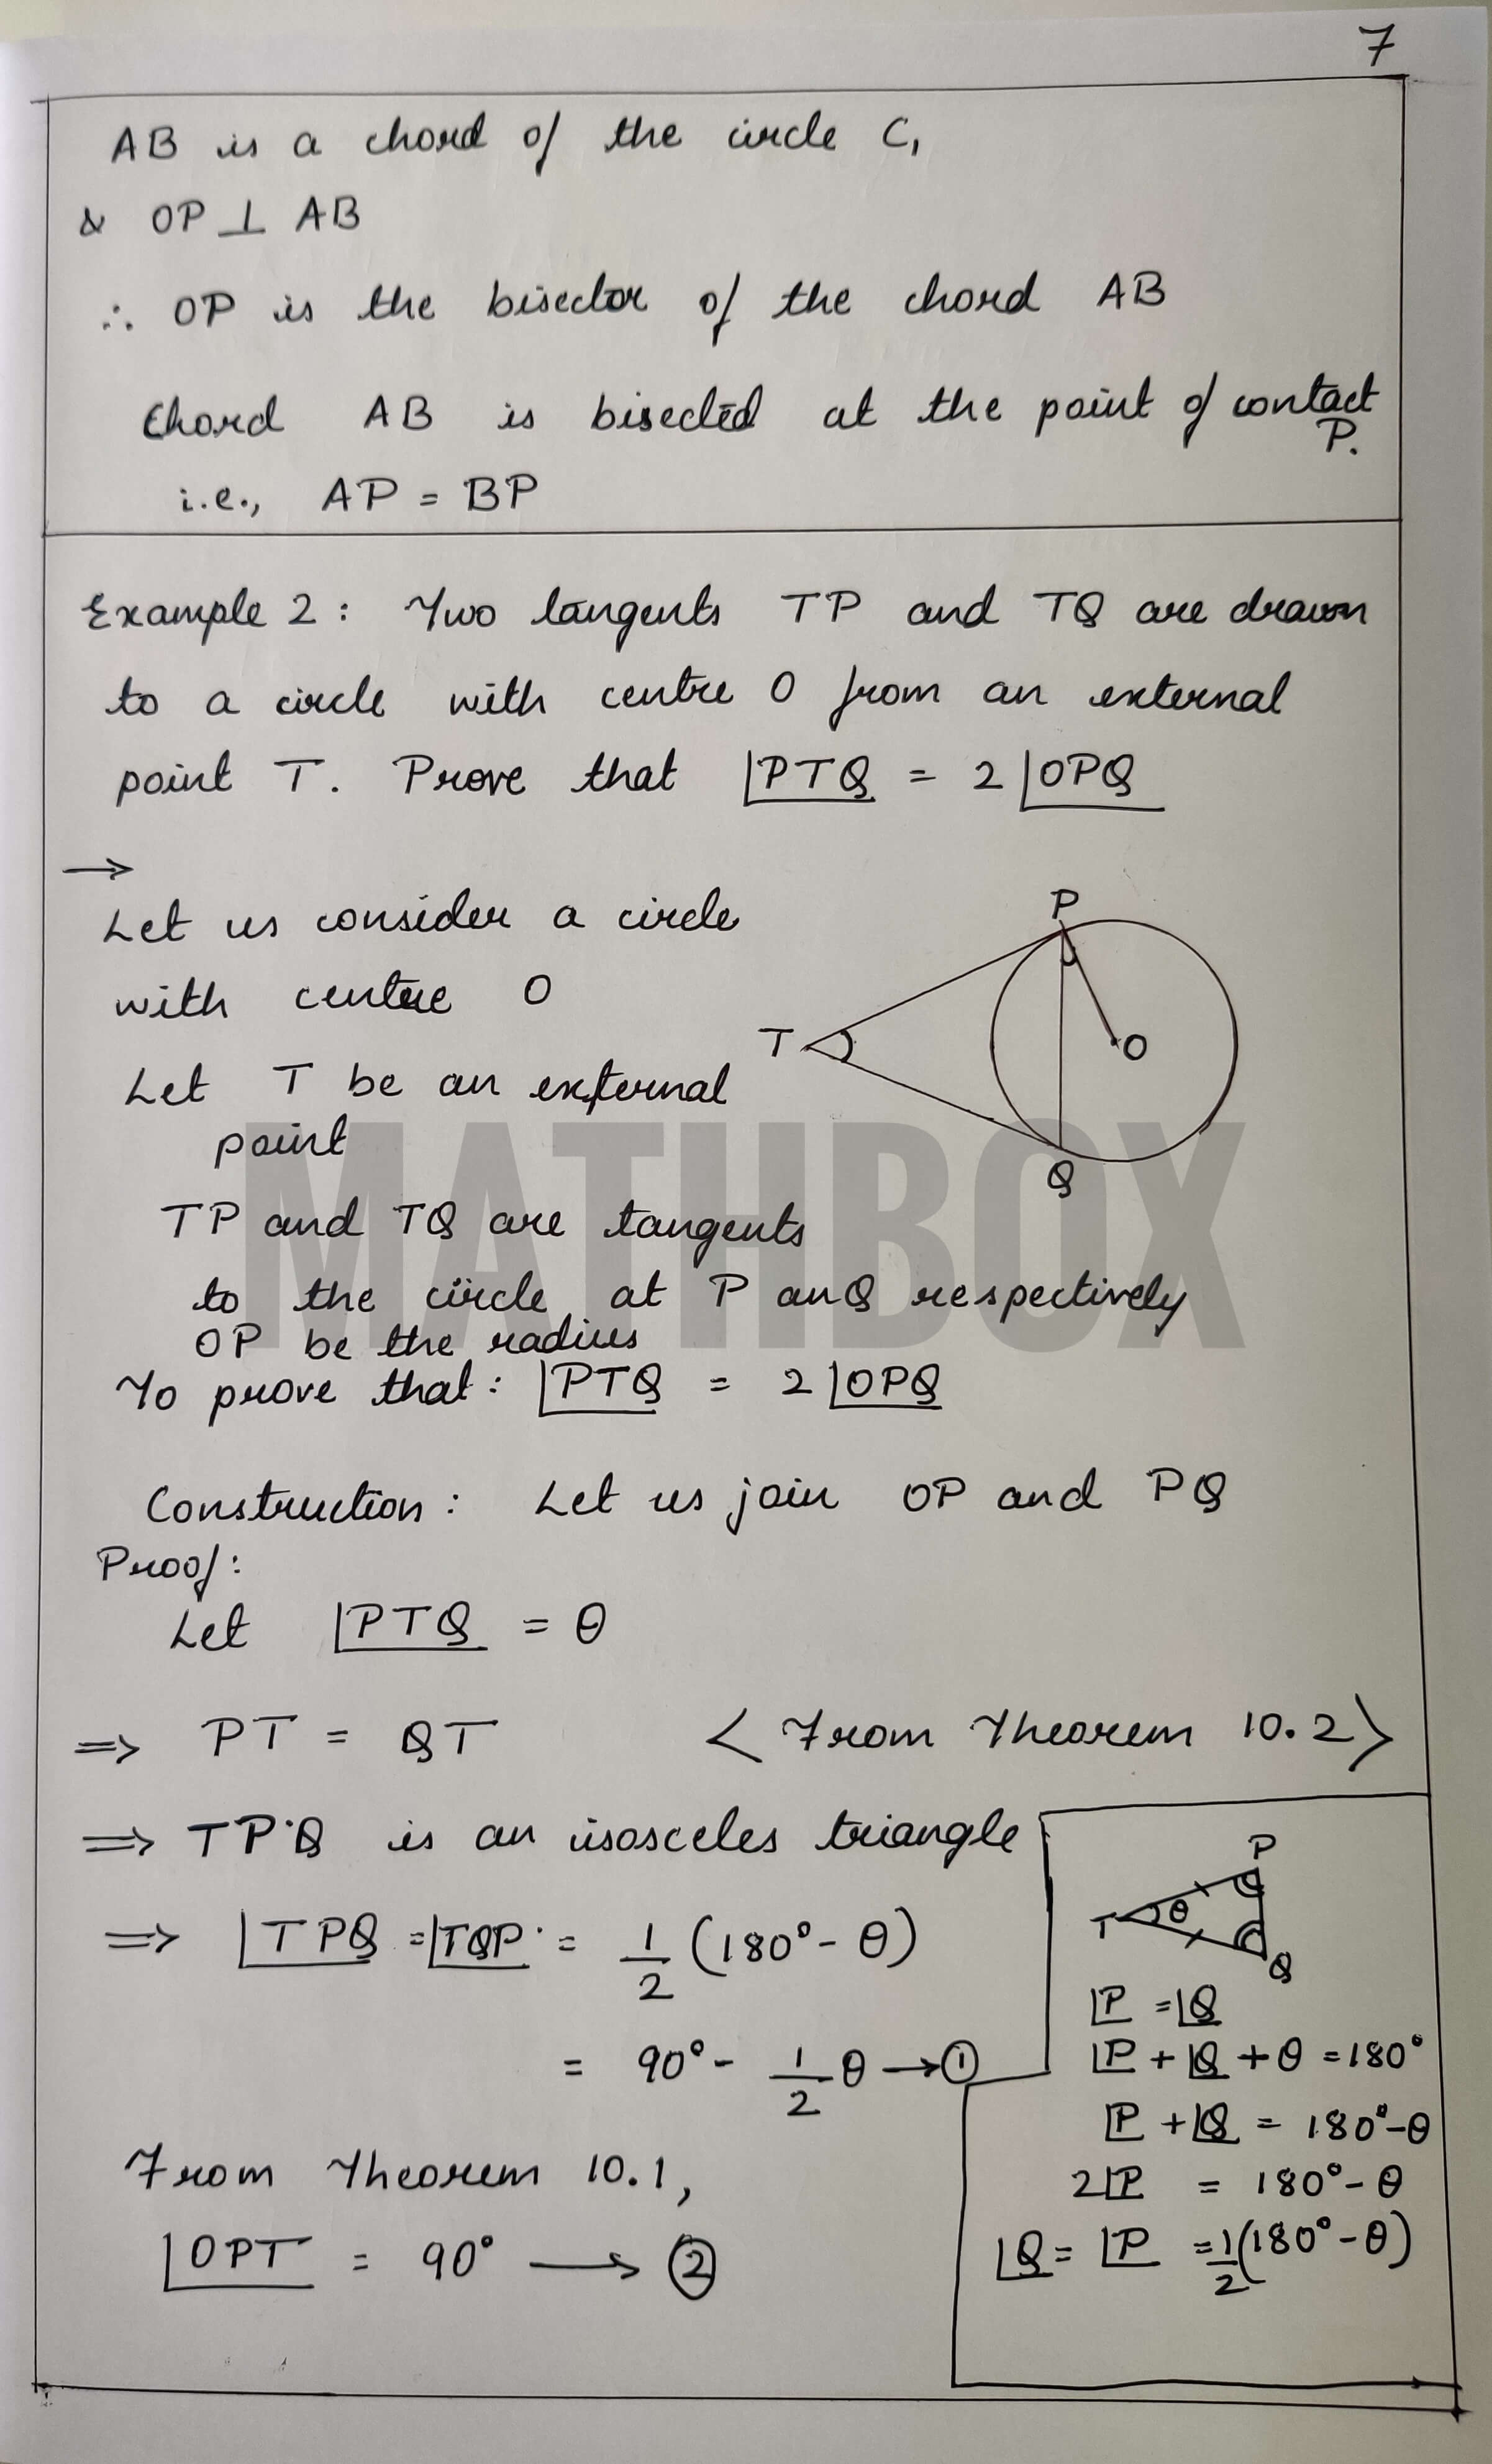 7
AB is a chord of the circle C₁
& OP ⊥ AB
∴ OP is the bisector of the chord AB
Chord AB is bisected at the point of contact P.
i.e., AP = BP
Example 2: Two tangents TP and TQ are drawn
to a circle with centre O from an external
point T. Prove that ∠PTQ = 2∠OPQ
→
Let us consider a circle
with centre O
Let T be an external
point
TP and TQ are tangents
to the circle at P anQ respectively
OP be the radius
To prove that: ∠PTQ = 2∠OPQ
Construction: Let us join OP and PQ
Proof:
Let ∠PTQ = θ
⇒ PT = QT <From Theorem 10.2>
⇒ TPQ is an isosceles triangle
⇒ ∠TPQ = ∠TQP = 1/2 (180° - θ)
= 90° - 1/2 θ → ①
From Theorem 10.1,
∠OPT = 90° → ②
P
T
O
Q
P
T θ
Q
∠P = ∠Q
∠P + ∠Q + θ = 180°
∠P + ∠Q = 180° - θ
2∠P = 180° - θ
∠Q = ∠P = 1/2 (180° - θ)
MATHBOX